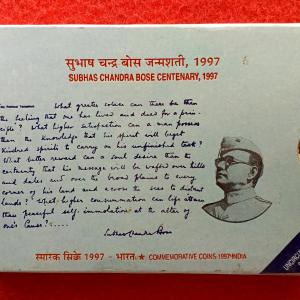 सुभाष चन्द्र बोस जन्मशती, 1997
SUBHAS CHANDRA BOSE CENTENARY, 1997
What greater solace can there be than
the feeling that one has lived and died for a prin-
ciple? What higher satisfaction can a man possess
than the knowledge that his spirit will beget
kindred spirits to carry on his unfinished task?
What better reward can a soul desire than the
certainty that his message will be wafted over hills
and dales and over the broad plains to every
corner of his land and across the seas to distant
lands? What higher consummation can life attain
than peaceful self-immolation at the altar of
one's Cause?
Subhas Chandra Bose
स्मारक सिक्के 1997 - भारत ★ COMMEMORATIVE COINS 1997-INDIA